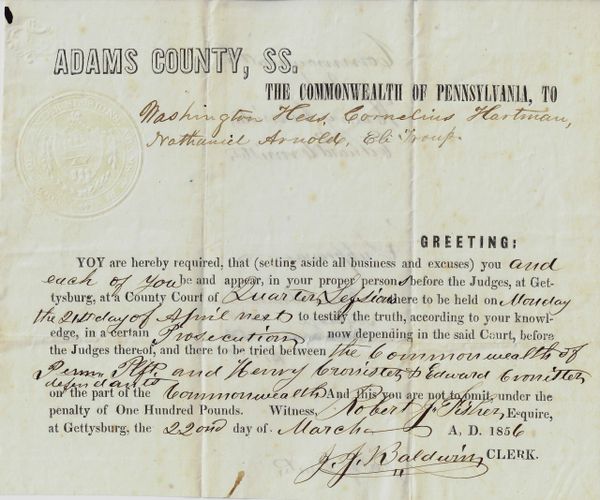 ADAMS COUNTY, SS.
THE COMMONWEALTH OF PENNSYLVANIA, TO
Washington Hess, Cornelius Hartman,
Nathaniel Arnold, Eli Troup.
GREETING:
YOY are hereby required, that (setting aside all business and excuses) you and
each of you be and appear, in your proper persons before the Judges, at Get-
tysburg, at a County Court of Quarter Sessions there to be held on Monday
the 21st day of April next to testify the truth, according to your knowl-
edge, in a certain Prosecution now depending in the said Court, before
the Judges thereof, and there to be tried between the Commonwealth of
Penna Plff and Henry Cronister & Edward Cronister
defendants on the part of the Commonwealth And this you are not to omit, under the
penalty of One Hundred Pounds. Witness, Robert J. Fisher, Esquire,
at Gettysburg, the 22ond day of March A, D. 1856
J. J. Baldwin, CLERK.